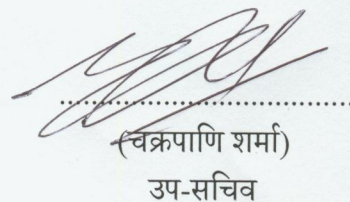 (चक्रपाणि शर्मा)
उप-सचिव